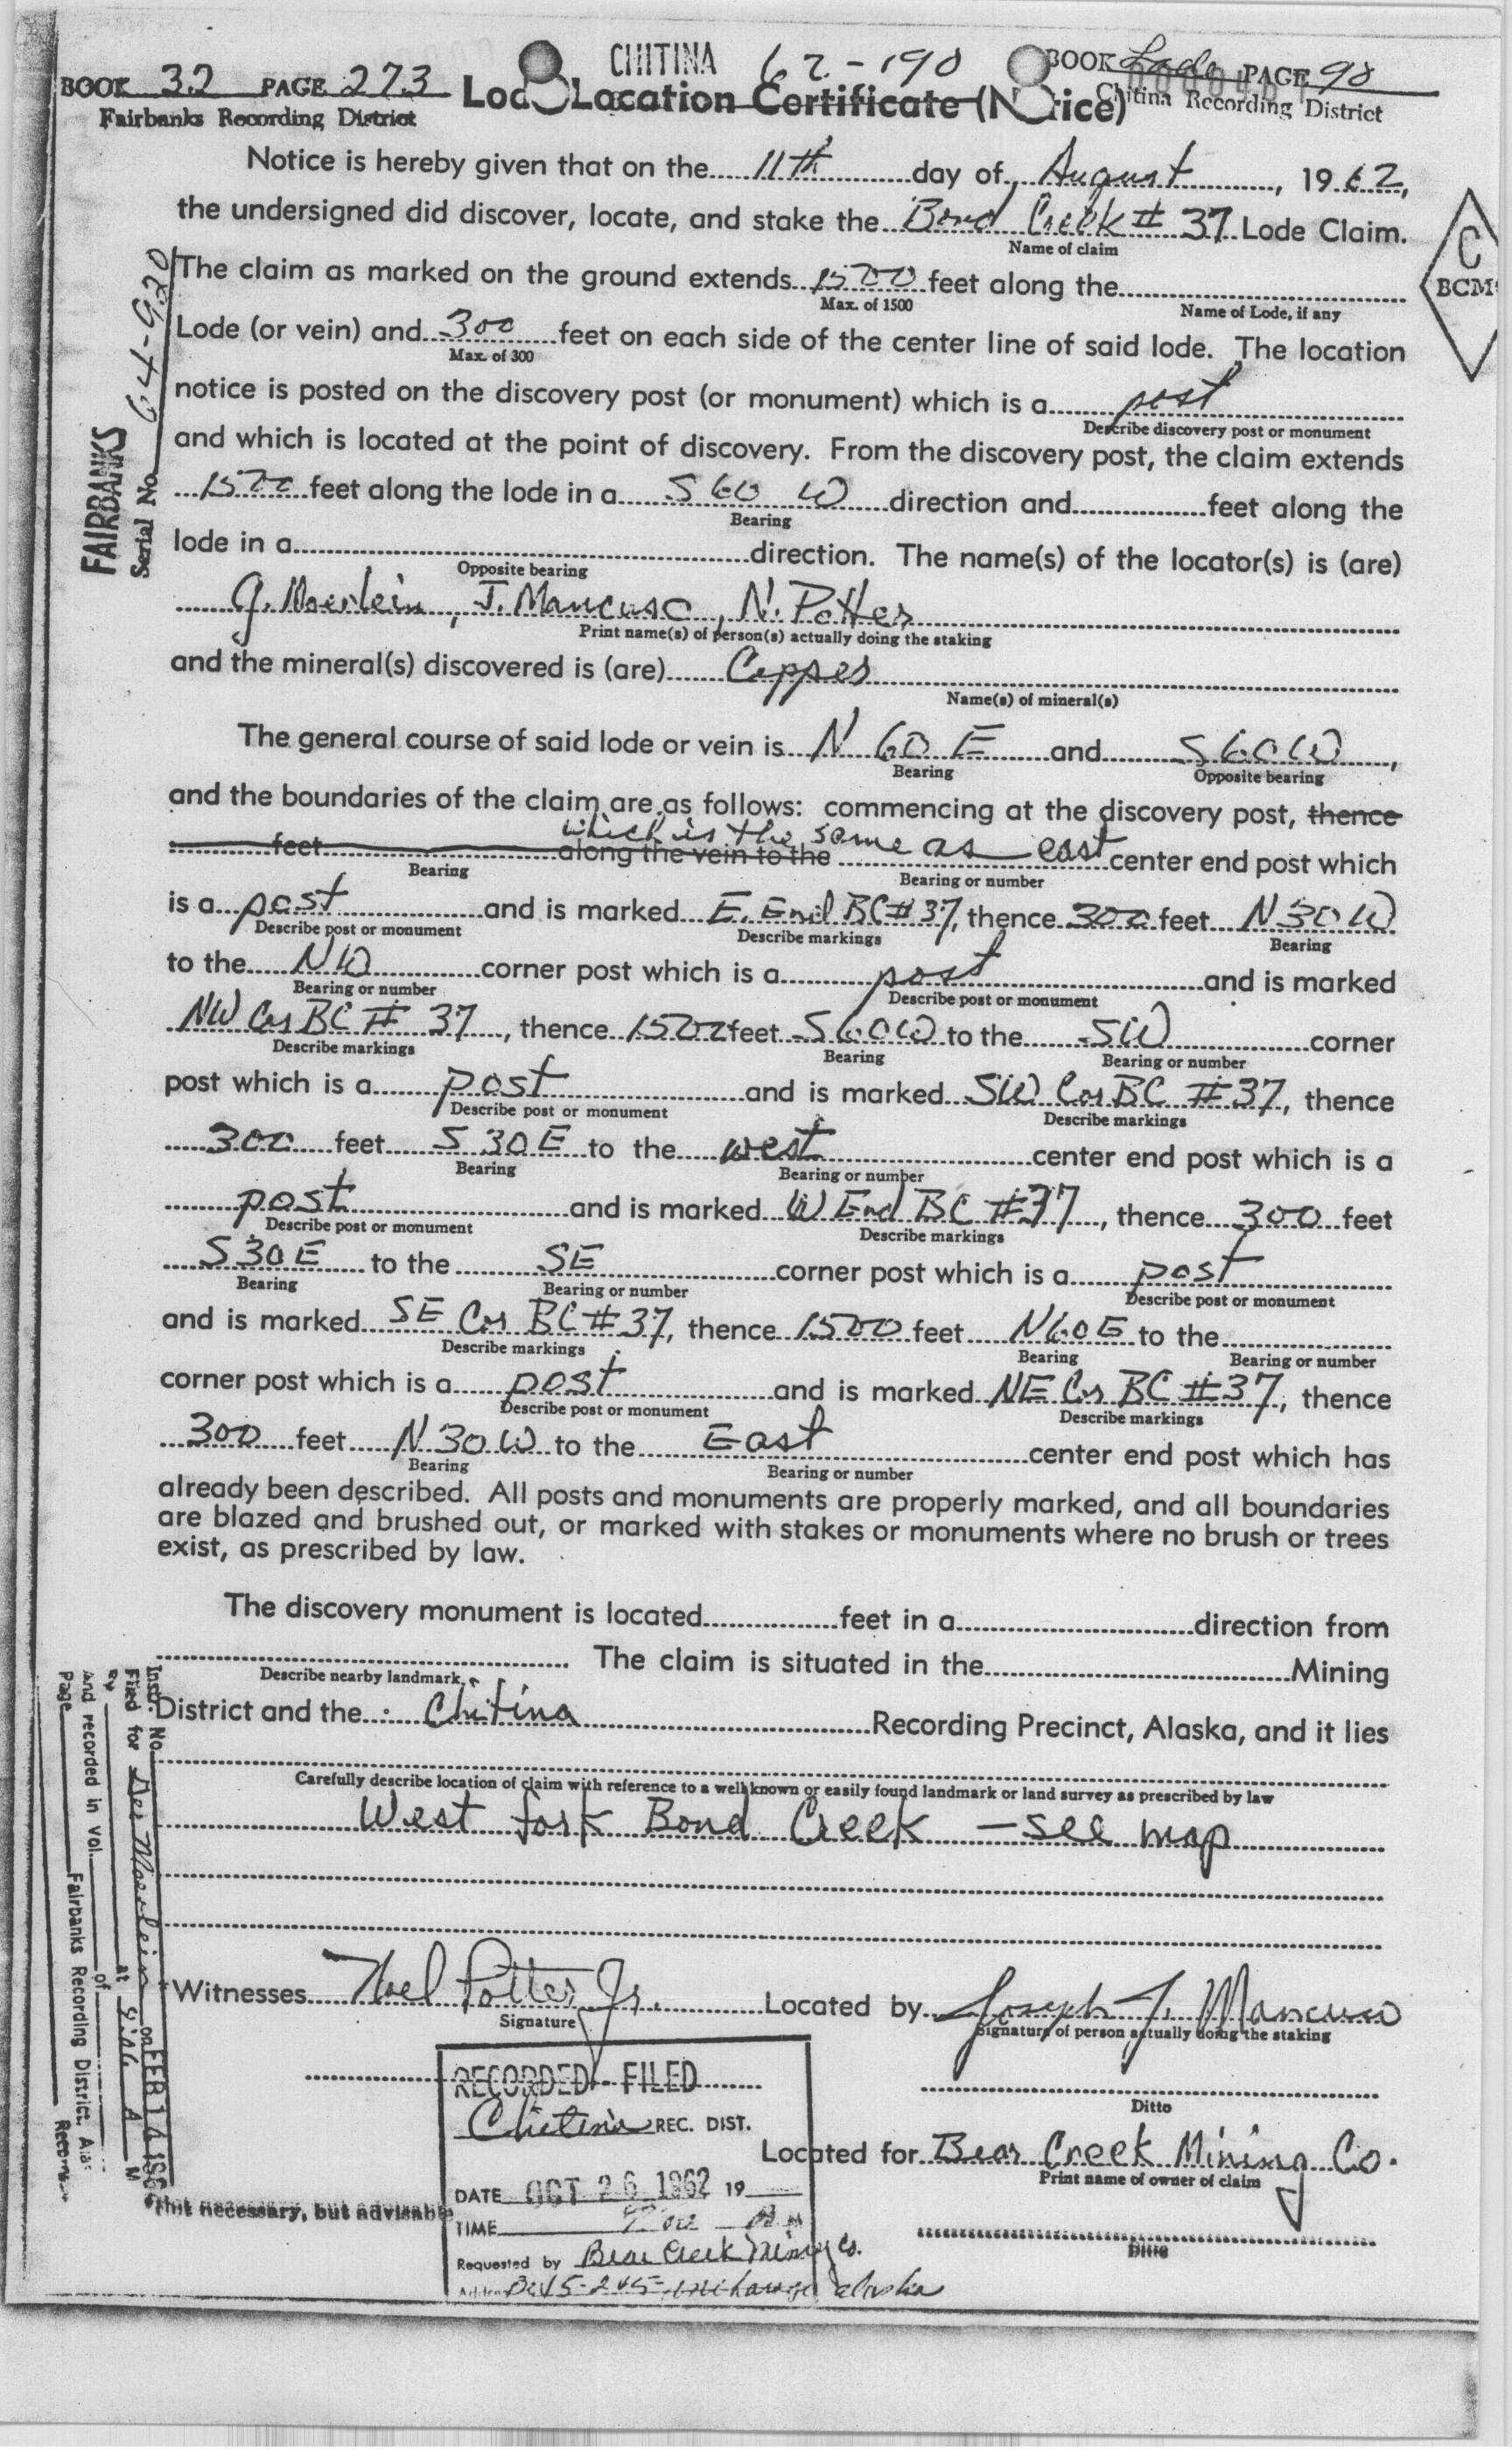 BOOK 32 PAGE 273
Fairbanks Recording District
CHITINA 62-190
BOOK Lode PAGE 90
Chitina Recording District
Lode Location Certificate (Notice)
Notice is hereby given that on the 11th day of August, 1962,
the undersigned did discover, locate, and stake the Bond Creek # 37 Lode Claim.
Name of claim
The claim as marked on the ground extends 1500 feet along the
Max. of 1500 Name of Lode, if any
Lode (or vein) and 300 feet on each side of the center line of said lode. The location
Max. of 300
notice is posted on the discovery post (or monument) which is a post
Describe discovery post or monument
and which is located at the point of discovery. From the discovery post, the claim extends
1500 feet along the lode in a S 60 W direction and feet along the
Bearing
lode in a direction. The name(s) of the locator(s) is (are)
Opposite bearing
G. Moerlein, J. Mancuso, N. Potter
Print name(s) of person(s) actually doing the staking
and the mineral(s) discovered is (are) Copper
Name(s) of mineral(s)
The general course of said lode or vein is N 60 E and S 60 W,
Bearing Opposite bearing
and the boundaries of the claim are as follows: commencing at the discovery post, thence
which is the same as east
feet along the vein to the center end post which
Bearing Bearing or number
is a post and is marked E. End BC# 37, thence 300 feet N 30 W
Describe post or monument Describe markings Bearing
to the NW corner post which is a post and is marked
Bearing or number Describe post or monument
NW Cor BC # 37, thence 1500 feet S 60 W to the SW corner
Describe markings Bearing Bearing or number
post which is a post and is marked SW Cor BC #37, thence
Describe post or monument Describe markings
300 feet S 30 E to the west center end post which is a
Bearing Bearing or number
post and is marked W End BC #37, thence 300 feet
Describe post or monument Describe markings
S 30 E to the SE corner post which is a post
Bearing Bearing or number Describe post or monument
and is marked SE Cor BC# 37, thence 1500 feet N 60 E to the
Describe markings Bearing Bearing or number
corner post which is a post and is marked NE Cor BC #37, thence
Describe post or monument Describe markings
300 feet N 30 W to the East center end post which has
Bearing Bearing or number
already been described. All posts and monuments are properly marked, and all boundaries
are blazed and brushed out, or marked with stakes or monuments where no brush or trees
exist, as prescribed by law.
The discovery monument is located feet in a direction from
The claim is situated in the Mining
Describe nearby landmark
District and the Chitina Recording Precinct, Alaska, and it lies
Carefully describe location of claim with reference to a well known or easily found landmark or land survey as prescribed by law
West fork Bond Creek - see map
*Witnesses Noel Potter Jr. Located by Joseph J. Mancuso
Signature Signature of person actually doing the staking
Ditto
Located for Bear Creek Mining Co.
Print name of owner of claim
Ditto
*Not necessary, but advisable
RECORDED - FILED
Chitina REC. DIST.
DATE OCT 26 1962 19
TIME
Requested by Bear Creek Mining Co.
Alaska
C
BCM
FAIRBANKS
Serial No. 64-920
Instr. No.
Filed for Ger Moerlein
on FEB 14
at A M
By
and recorded in Vol. of
Page Fairbanks Recording District,